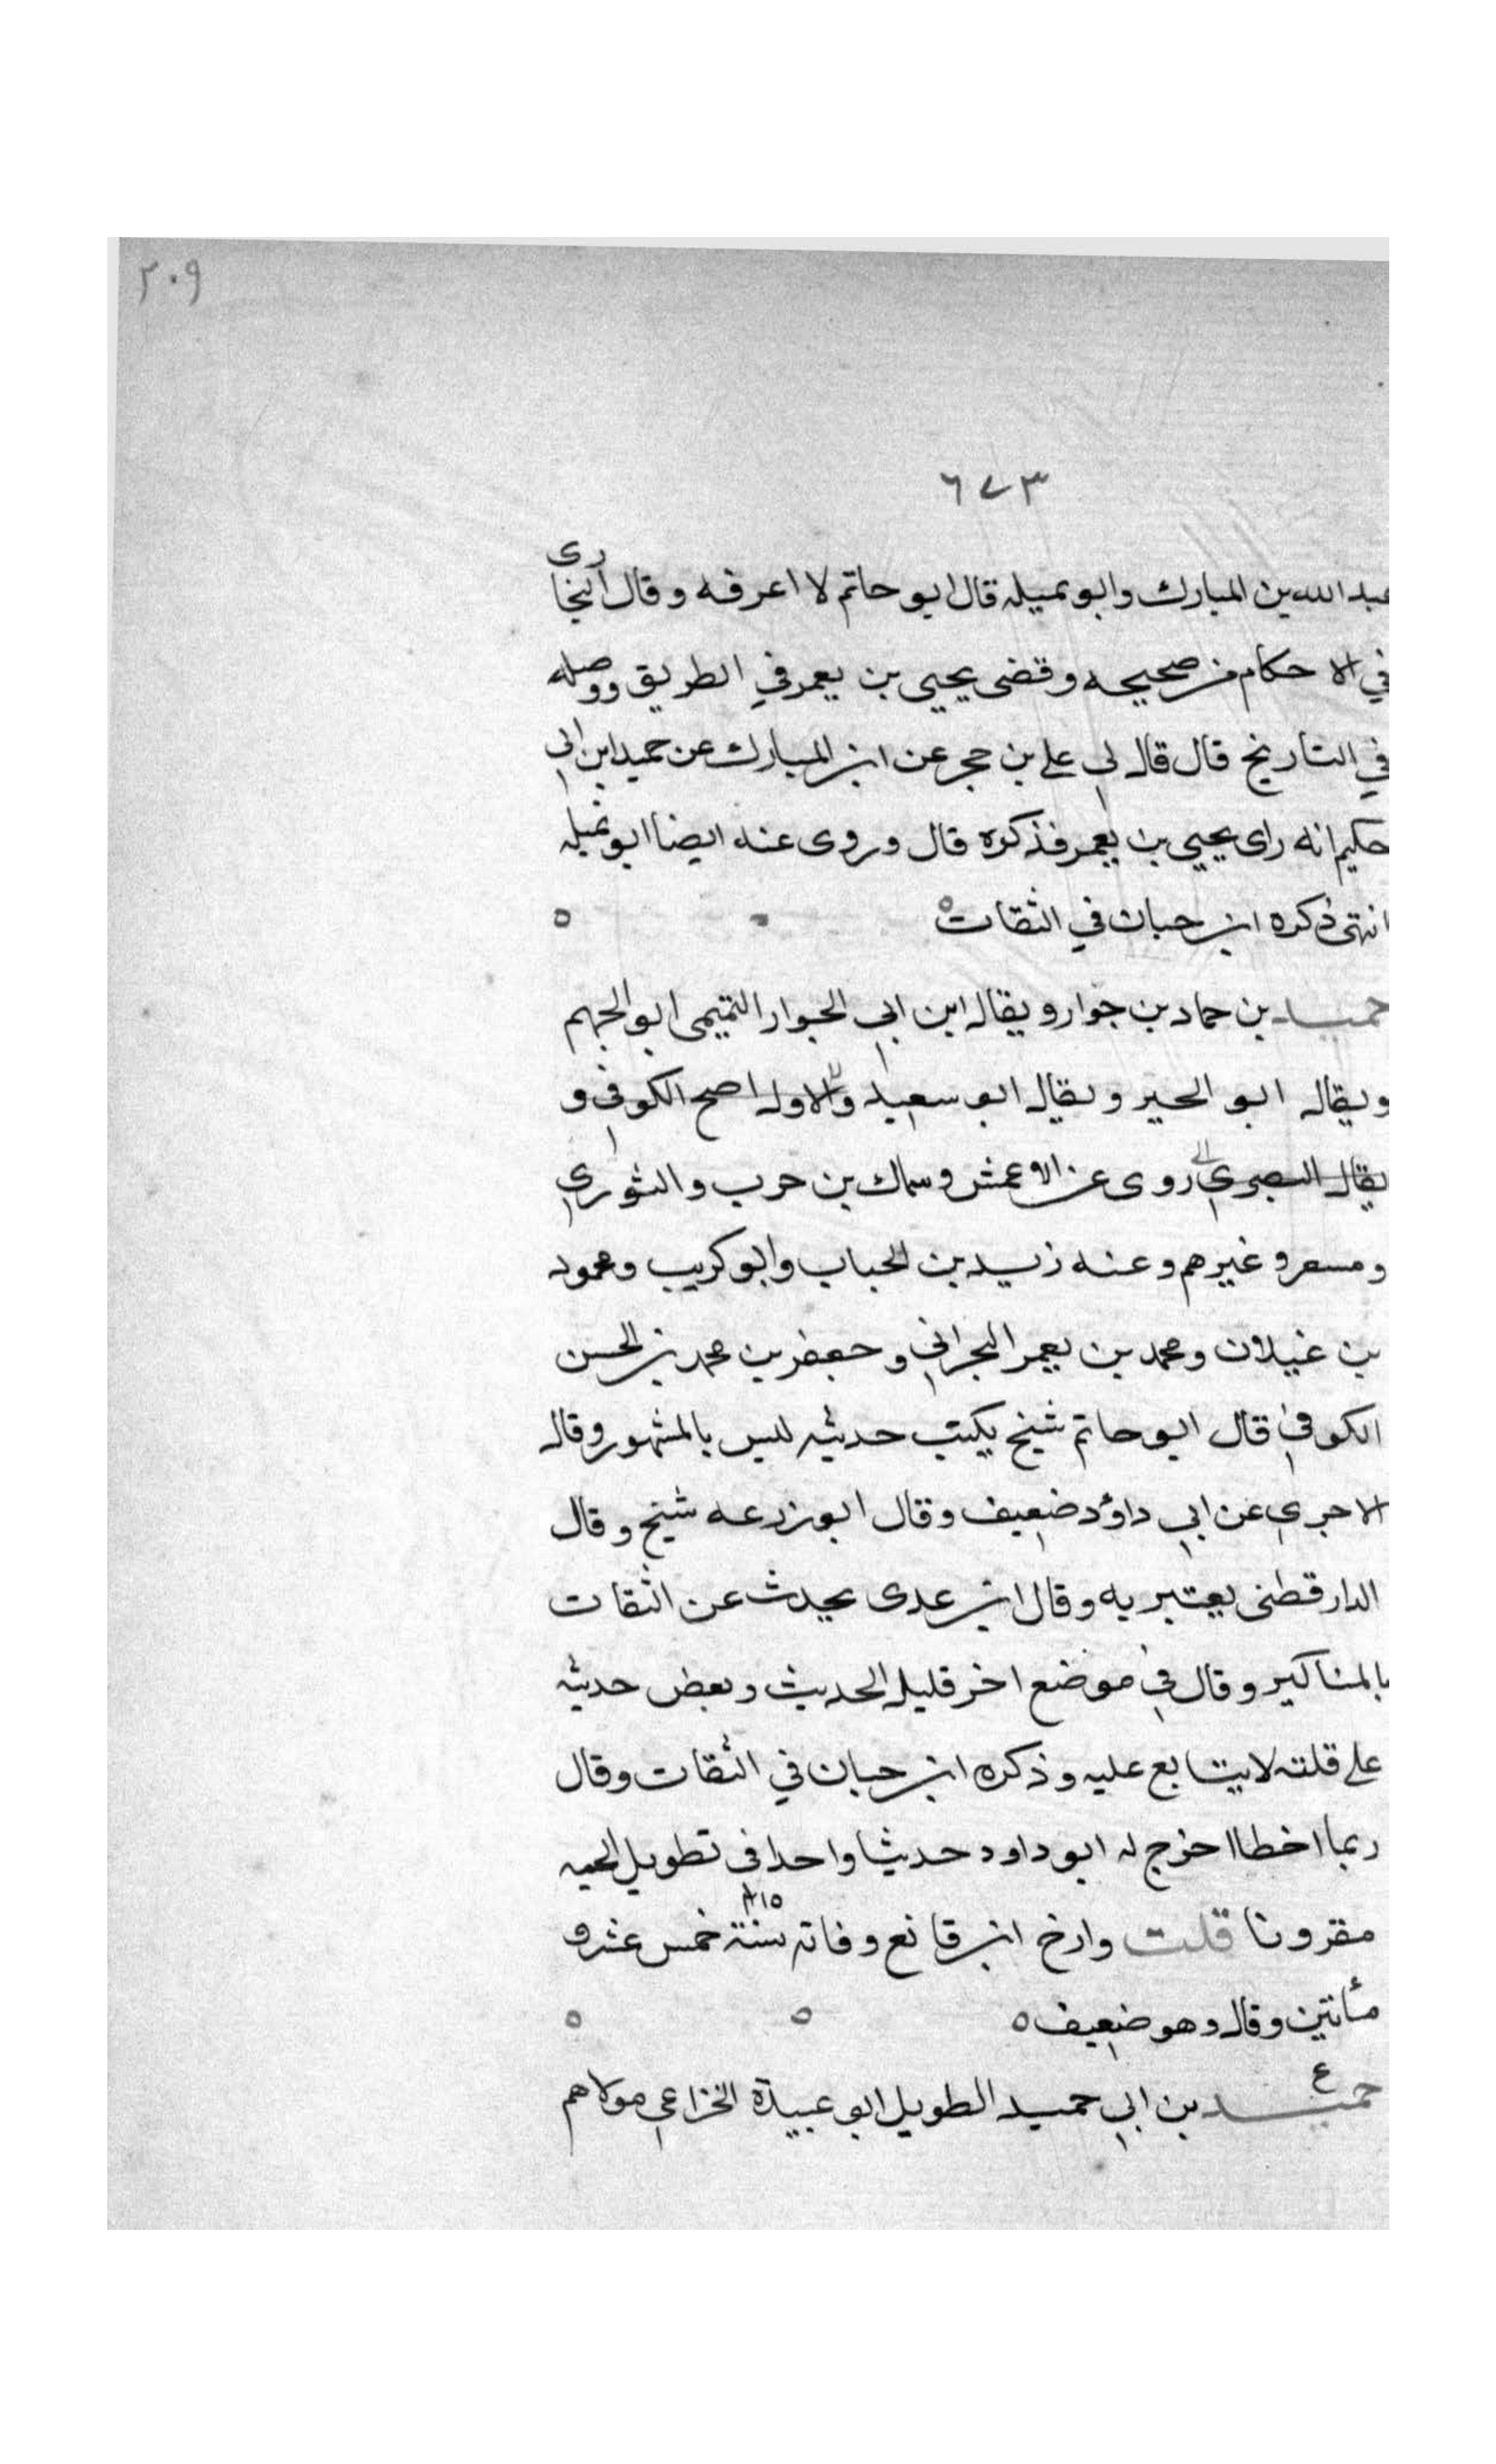 ٢٠٩
٦٧٣
عبد الله بن المبارك وابو تميله قال ابو حاتم لا اعرفه وقال البخارى
في الاحكام من صحيحه وقضى يحيى بن يعمر في الطريق ووصله
في التاريخ قال قال لي علي بن حجر عن ابن المبارك عن حميد ابن ابي
حكيم انه راى يحيى بن يعمر فذكره قال وروى عنه ايضا ابو تميله
انتهى ذكره ابن حبان في الثقات ه
حميد بن حماد بن جوار ويقال ابن ابي الجوار التميمي ابو الجهم
ويقال ابو الحير ويقال ابو سعيد والاول اصح الكوفي و
يقال البصري روى عن الاعمش وسماك بن حرب والثوري
ومسعر وغيرهم وعنه زيد بن الحباب وابو كريب ومحمود
بن غيلان ومحمد بن يعمر البحراني وجعفر بن محمد بن الحسن
الكوفي قال ابو حاتم شيخ يكتب حديثه ليس بالمشهور وقال
الاجري عن ابي داؤد ضعيف وقال ابو زرعه شيخ وقال
الدارقطني يعتبر به وقال ابن عدى يحدث عن الثقات
بالمناكير وقال في موضع اخر قليل الحديث وبعض حديثه
على قلته لا يتابع عليه وذكره ابن حبان في الثقات وقال
ربما اخطا اخرج له ابو داود حديثا واحدا في تطويل الجمه
مقرونا قلت وارخ ابن قانع وفاته سنة خمس عشر و
مأتين وقال وهو ضعيف ه
حميد بن ابي حميد الطويل ابو عبيدة الخزاعي مولاهم